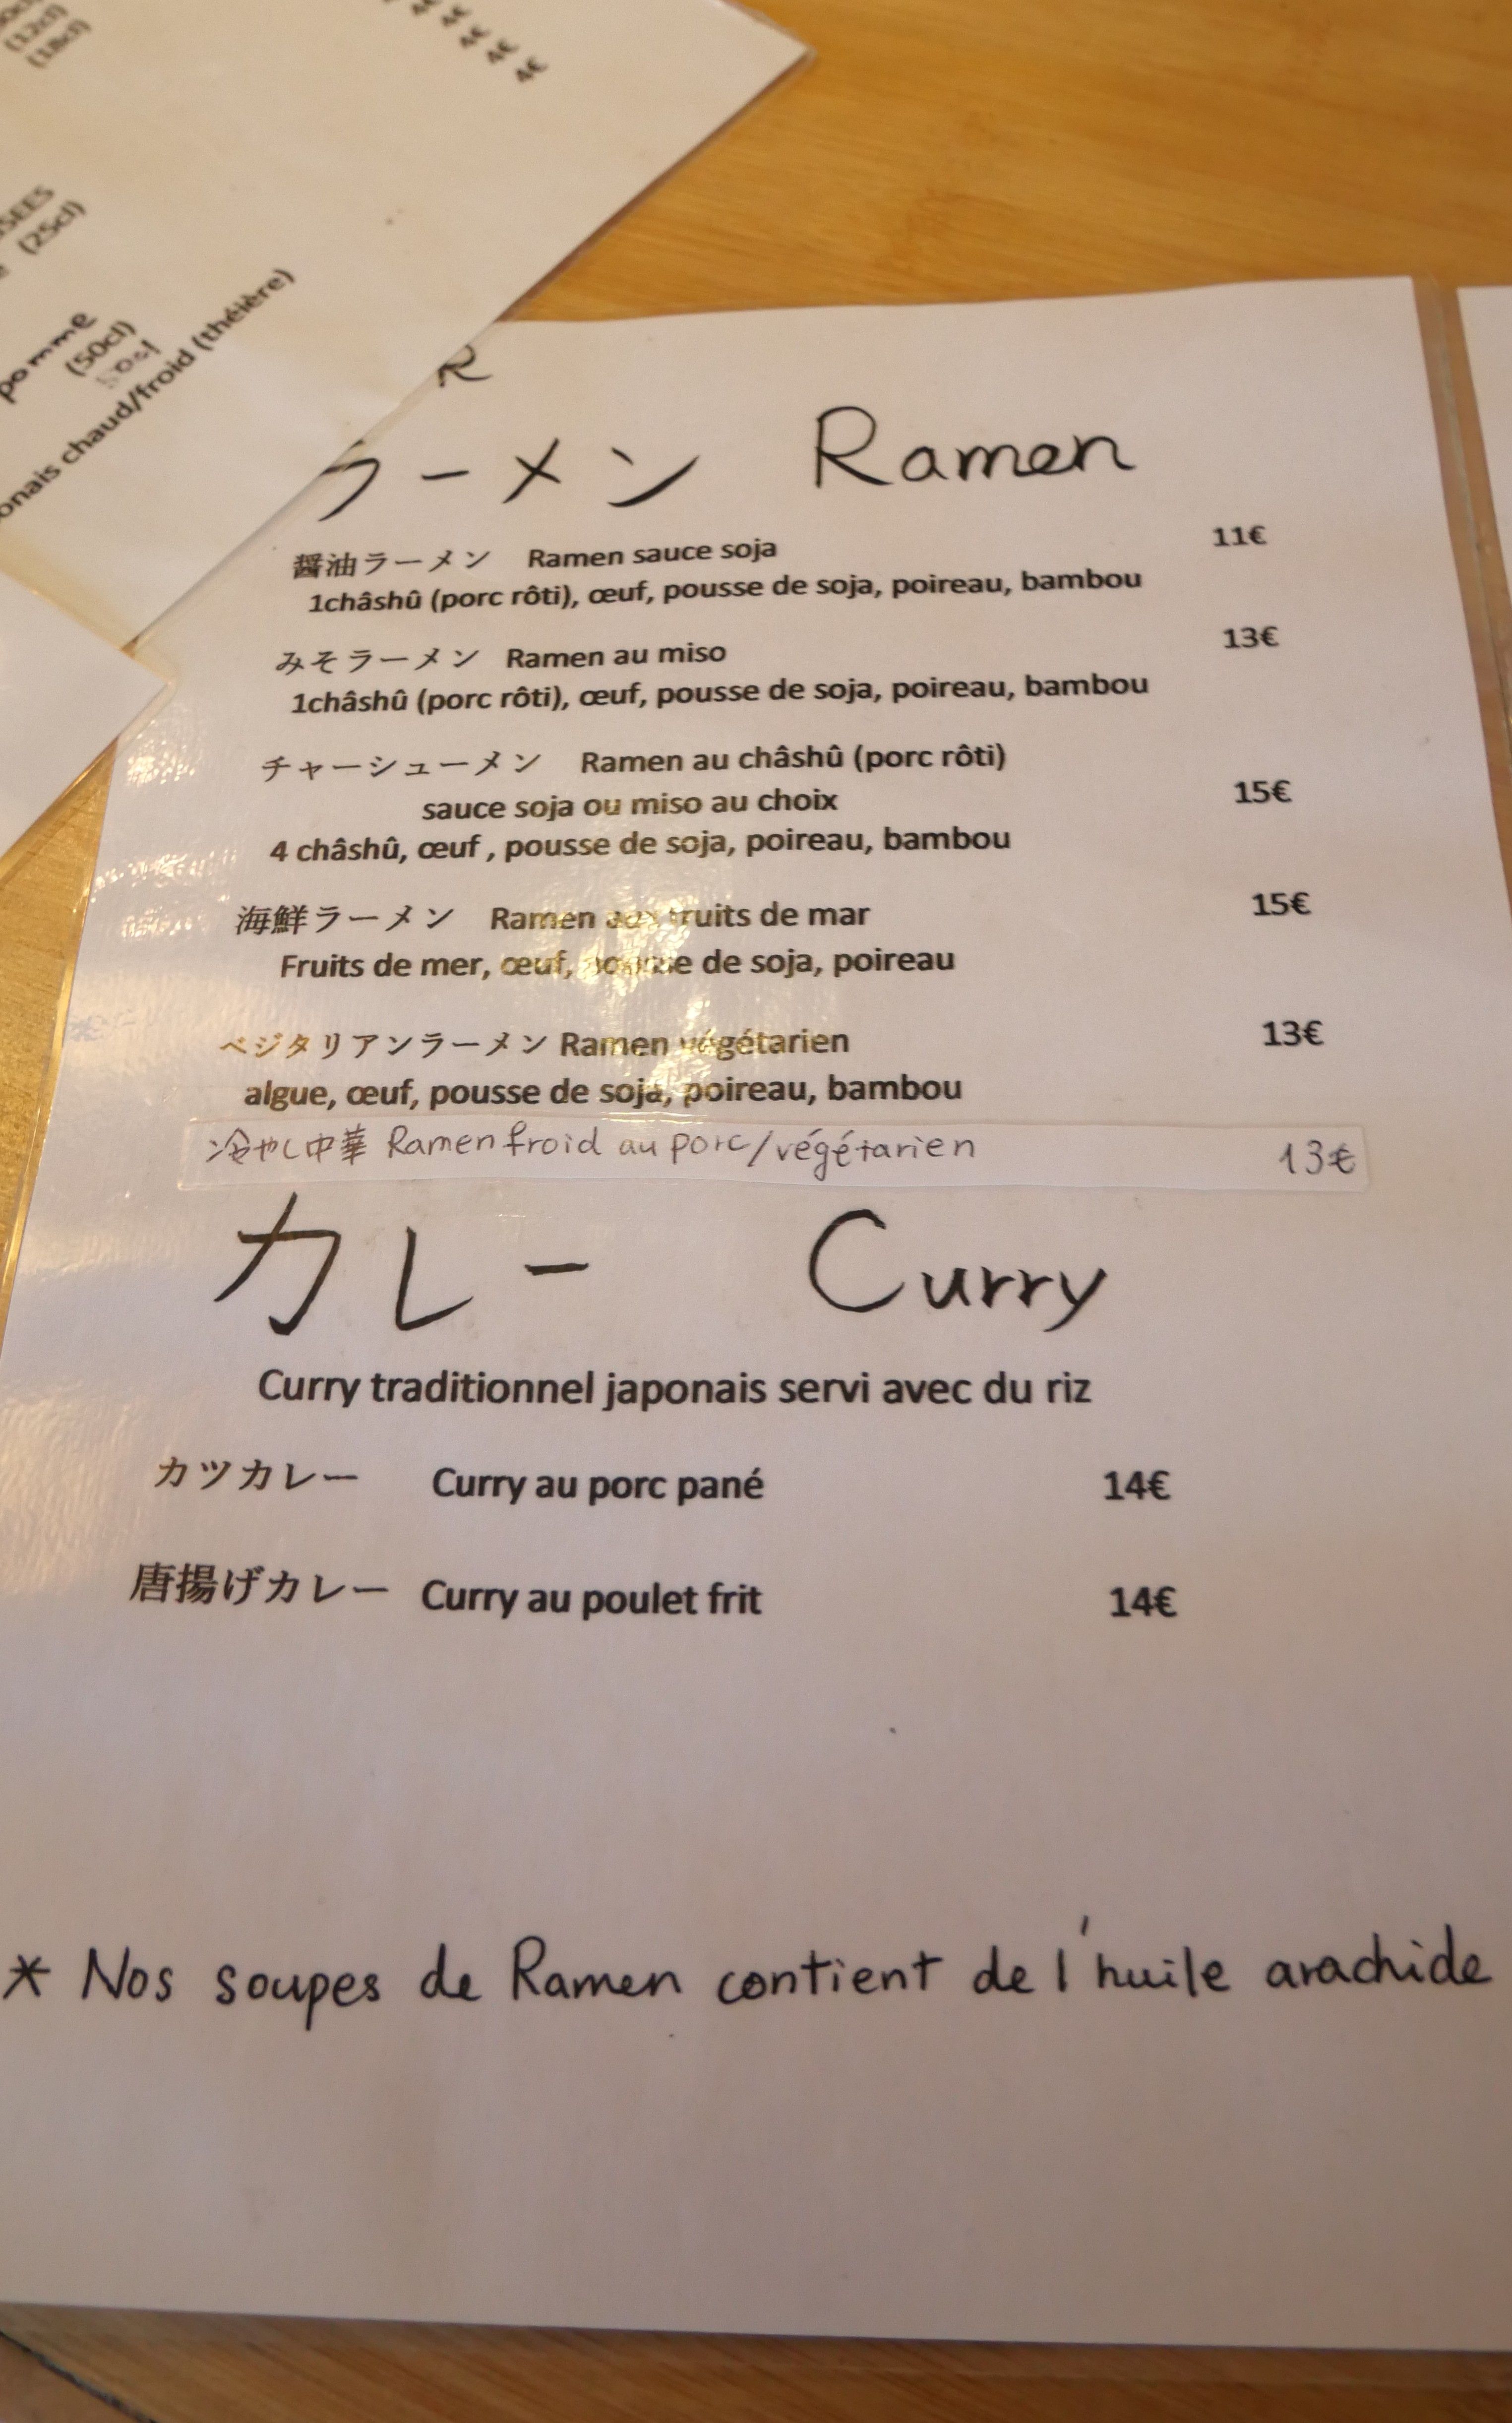 (12cl)
(18cl)
4€
4€
4€
4€
4€
(25cl)
pomme
(50cl)
onais chaud/froid (théière)
R
ラーメン Ramen
醤油ラーメン Ramen sauce soja 11€
1châshû (porc rôti), œuf, pousse de soja, poireau, bambou
みそラーメン Ramen au miso 13€
1châshû (porc rôti), œuf, pousse de soja, poireau, bambou
チャーシューメン Ramen au châshû (porc rôti)
sauce soja ou miso au choix 15€
4 châshû, œuf , pousse de soja, poireau, bambou
海鮮ラーメン Ramen aux fruits de mar 15€
Fruits de mer, œuf, pousse de soja, poireau
ベジタリアンラーメン Ramen végétarien 13€
algue, œuf, pousse de soja, poireau, bambou
冷やし中華 Ramen froid au porc/végétarien 13€
カレー Curry
Curry traditionnel japonais servi avec du riz
カツカレー Curry au porc pané 14€
唐揚げカレー Curry au poulet frit 14€
* Nos soupes de Ramen contient de l'huile arachide